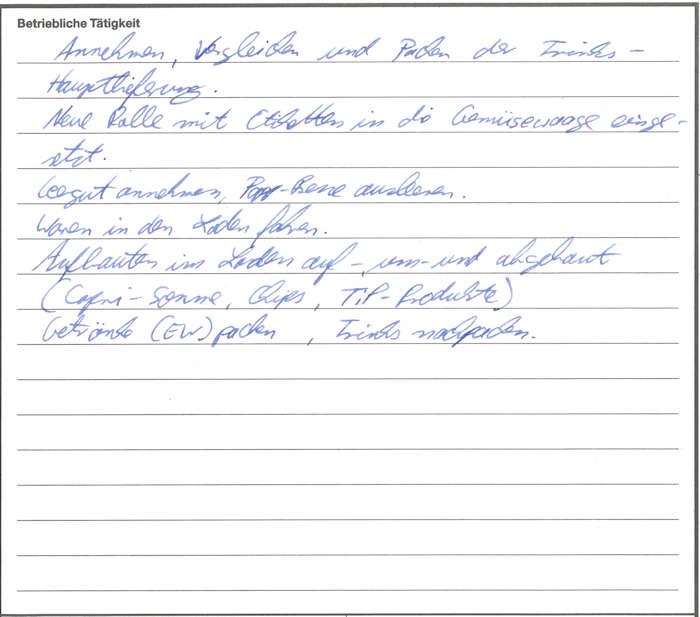 Betriebliche Tätigkeit
Annehmen, Vergleichen und Packen der Trinks-
Hauptlieferung.
Neue Rolle mit Etiketten in die Gemüsewaage einge-
setzt.
Leergut annehmen, Papp-Presse ausleeren.
Waren in den Laden fahren.
Aufbauten im Laden auf-, um- und abgebaut
(Capri-Sonne, Chips, TiP-Produkte)
Getränke (EW) packen, Trinks nachpacken.